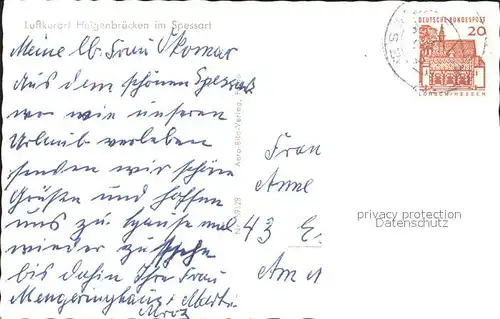 Luftkurort Heigenbrücken im Spessart
DEUTSCHE BUNDESPOST
20
LORSCH/HESSEN
Meine lb. Frau Skomar
Aus dem schönen Spessart
wo wir unseren
Urlaub verleben
senden wir schöne
Grüße und hoffen
uns zu Hause mal
wieder zu sehn
bis dahin Ihre Frau
Mengeringhaus + Martin
Aero-Bild-Verlag,
Frau
Anne
43 E.
Am A
privacy protection
Datenschutz